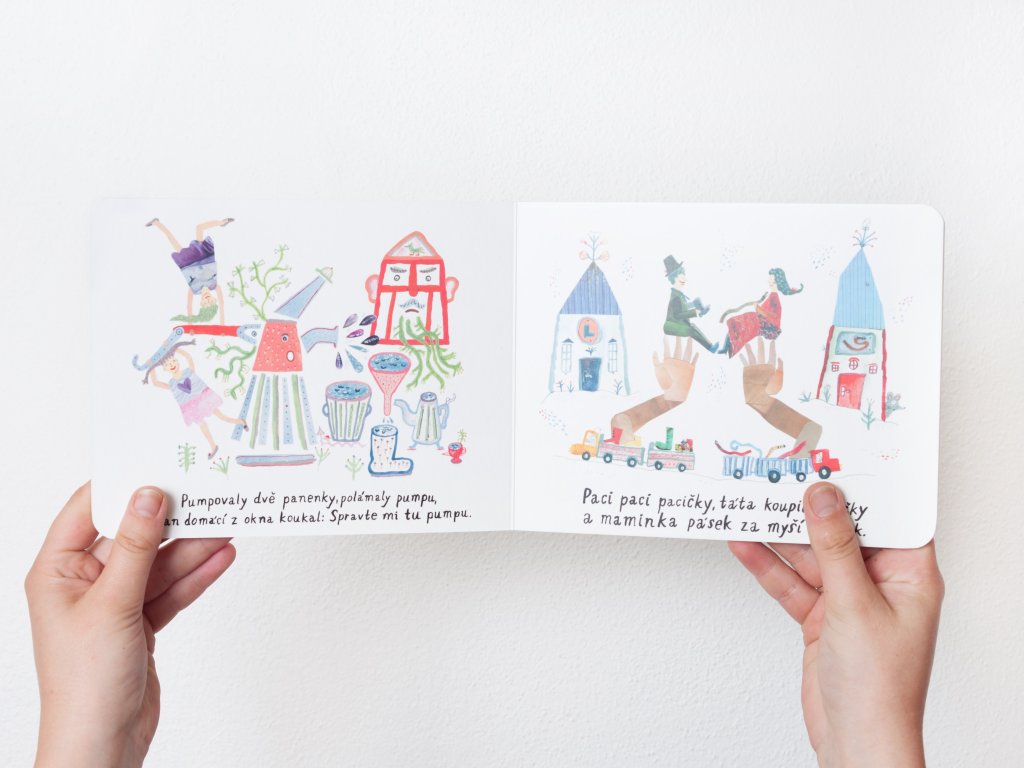 Pumpovaly dvě panenky, polámaly pumpu,
domácí z okna koukal: Spravte mi tu pumpu.
Paci paci pacičky, táta koupil
a maminka pásek za myší